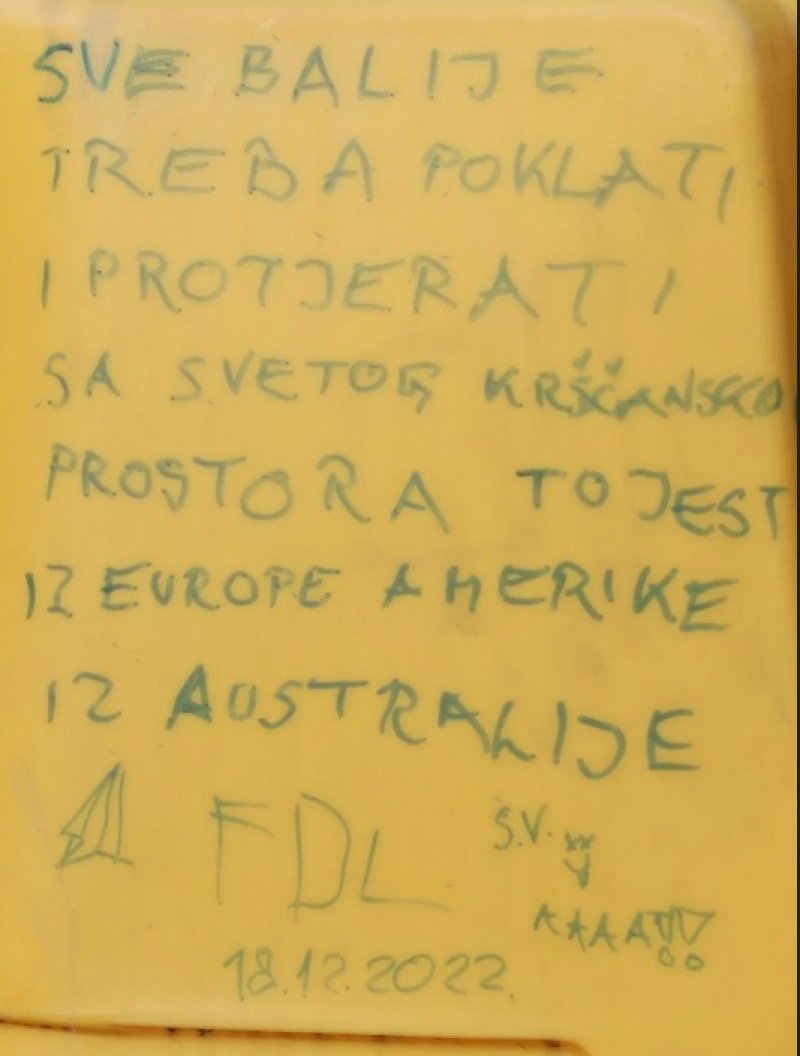 SVE BALIJE
TREBA POKLATI,
I PROTJERATI
SA SVETOG KRŠČANSKO
PROSTORA TO JEST
IZ EUROPE AMERIKE
IZ AUSTRALIJE
FDL S.V.
AAAA
18.12.2022.